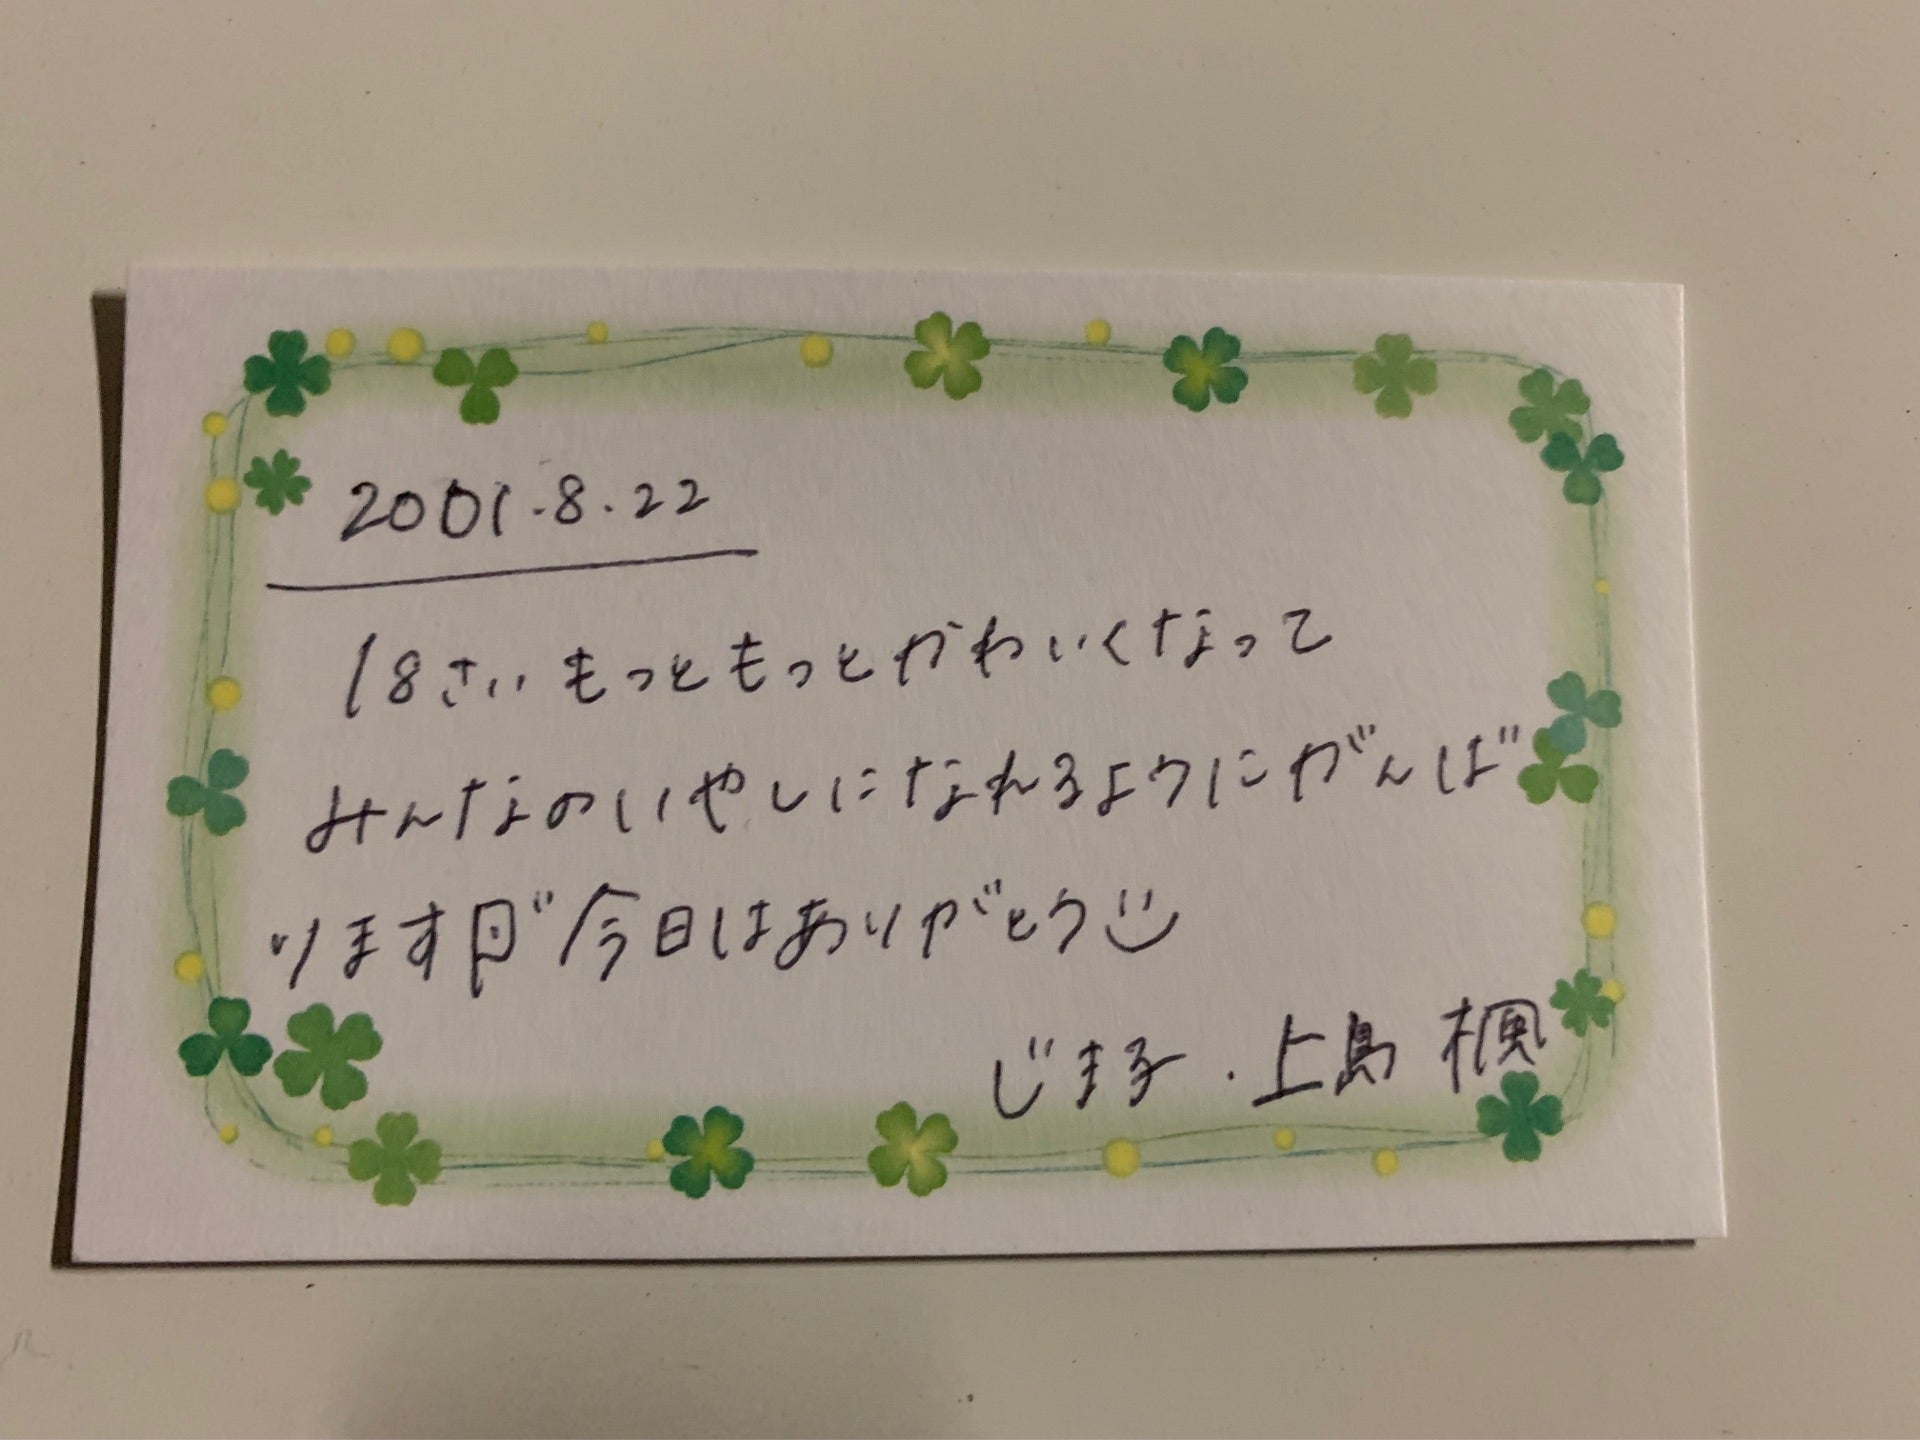 2001.8.22
18さいもっともっとかわいくなって
みんなのいやしになれるようにがんば
ります 今日はありがとう
じま子.上島 楓